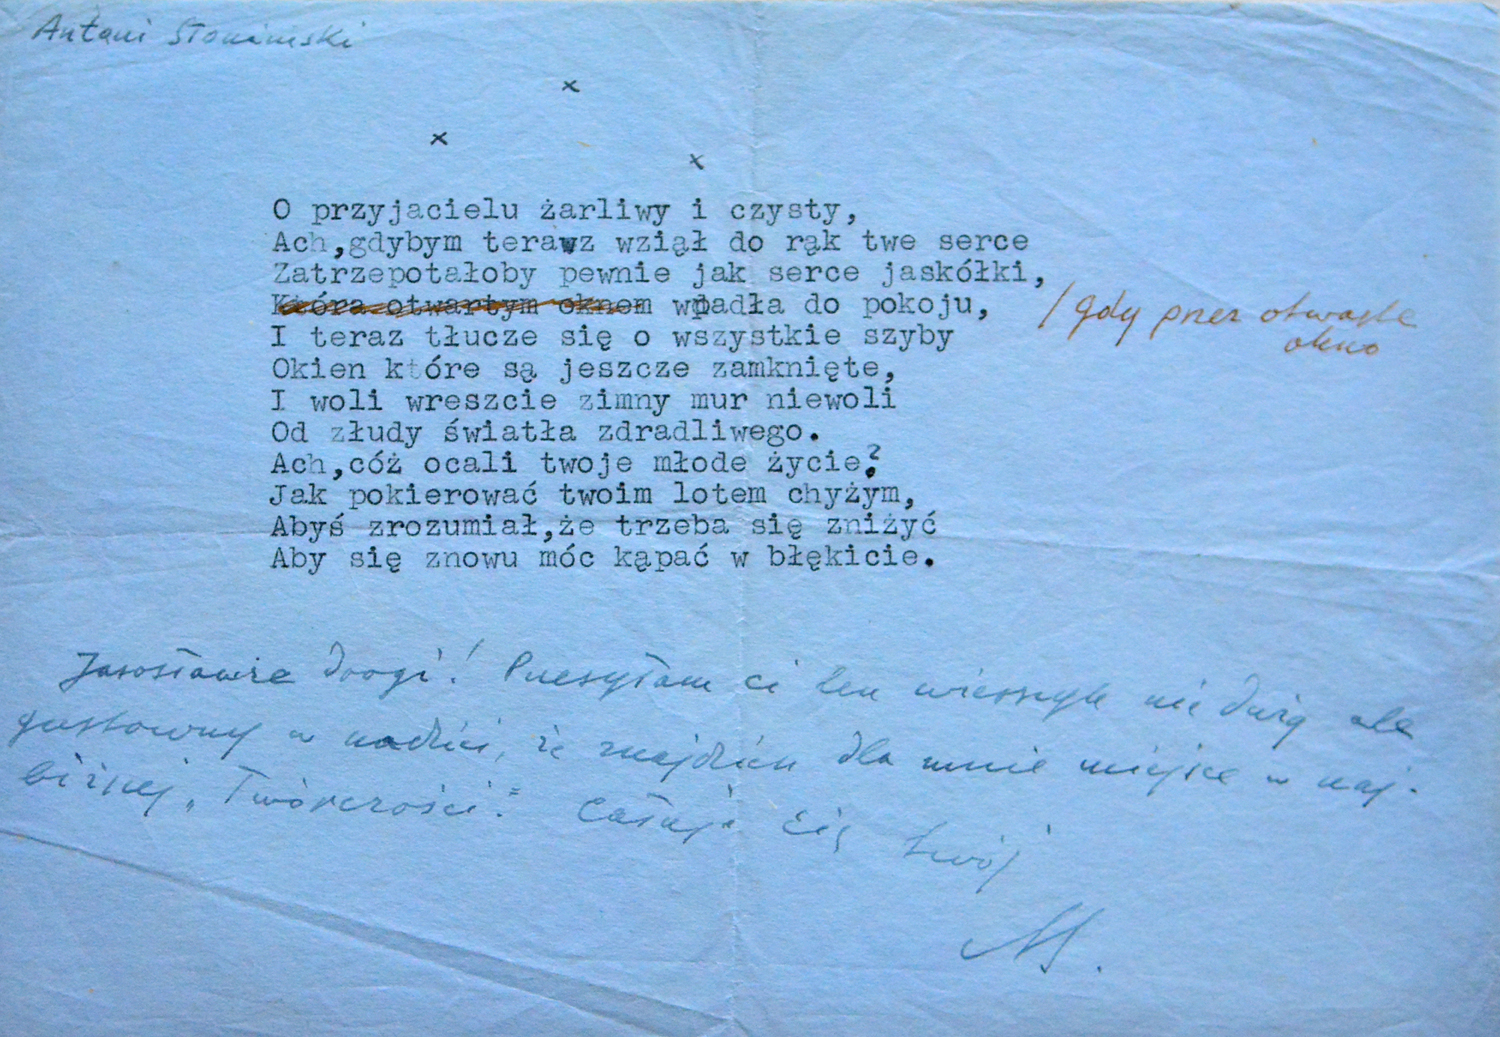 Antoni Słonimski
x
x
x
O przyjacielu żarliwy i czysty,
Ach,gdybym terawz wziął do rąk twe serce
Zatrzepotałoby pewnie jak serce jaskółki,
Która otwartym oknem wpadła do pokoju,
/ gdy przez otwarte
okno
I teraz tłucze się o wszystkie szyby
Okien które są jeszcze zamknięte,
I woli wreszcie zimny mur niewoli
Od złudy światła zdradliwego.
Ach,cóż ocali twoje młode życie?
Jak pokierować twoim lotem chyżym,
Abyś zrozumiał,że trzeba się zniżyć
Aby się znowu móc kąpać w błękicie.
Jarosławie drogi! Przesyłam ci ten wierszyk nie duży ale
gustowny w nadziei, że znajdziesz dla mnie miejsce w naj-
bliżej „Twórczości". Całuję cię twój